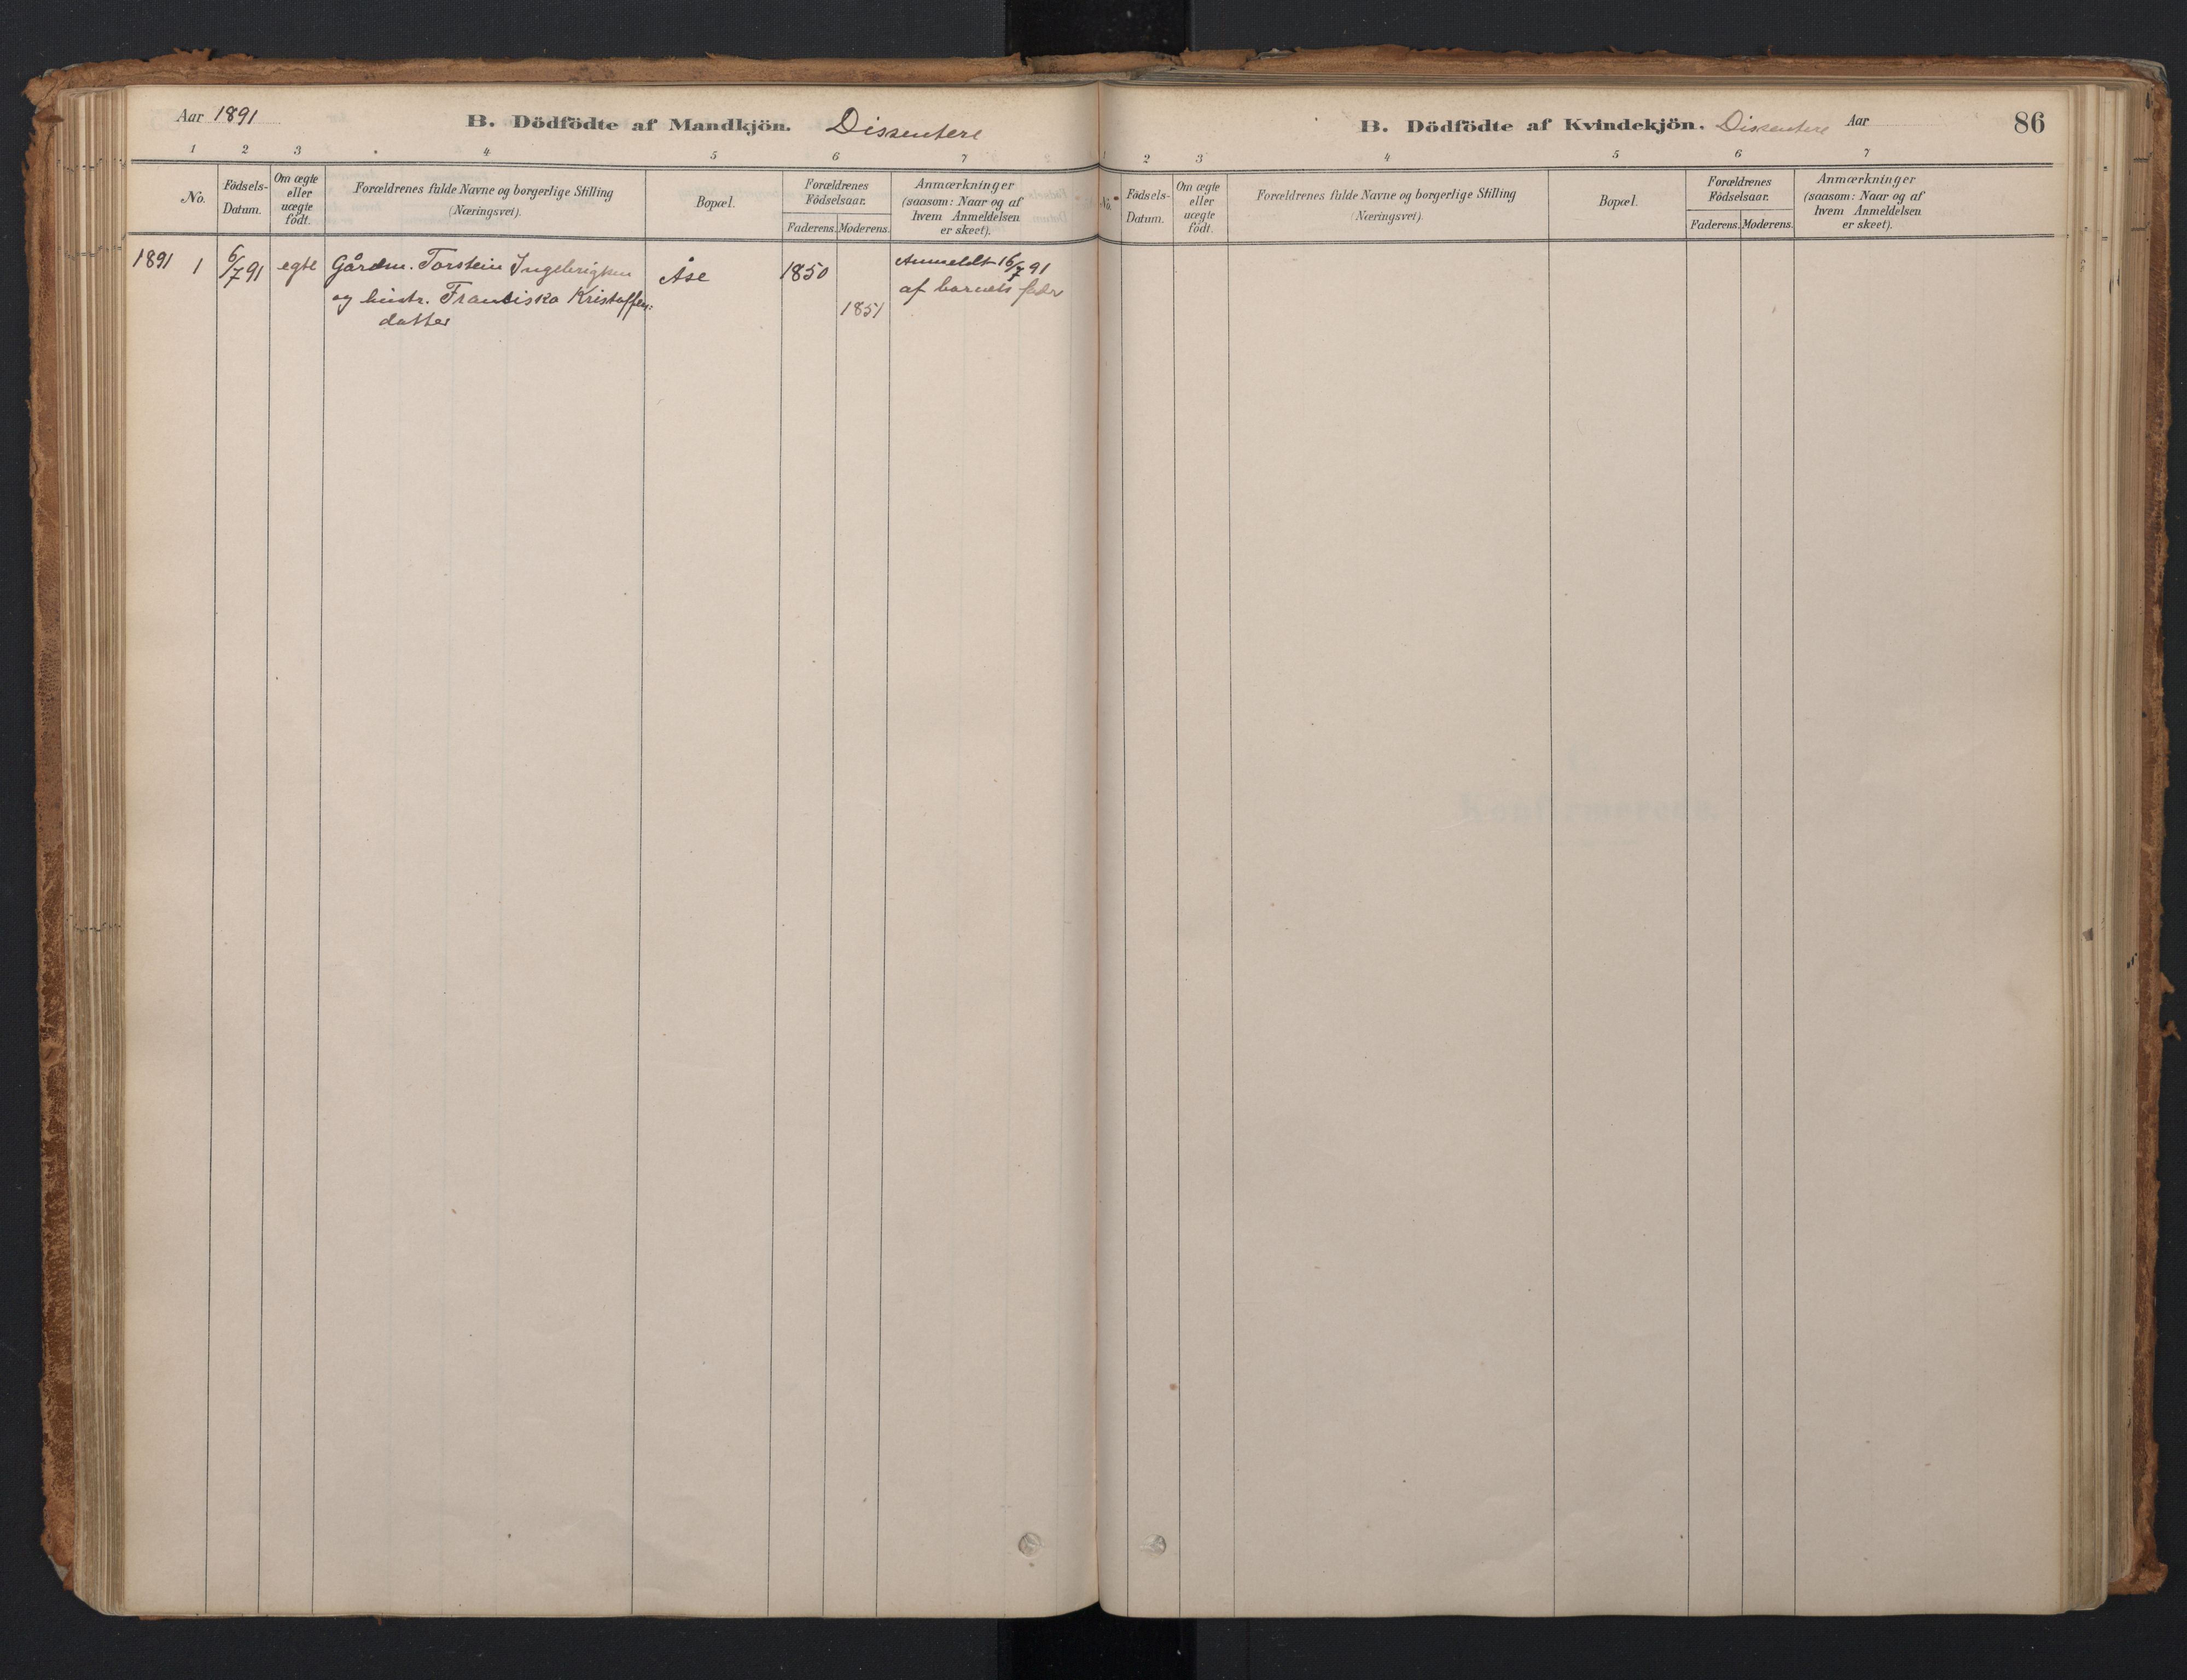 Aar 1891
B. Dödfödte af Mandkjön. Dissentere
1 2 3 4 5 6 7
No.
Födsels-
Datum.
Om ægte
eller
uægte
födt.
Forældrenes fulde Navne og borgerlige Stilling
(Næringsvei).
Bopæl.
Forældrenes
Födselsaar.
Faderens. Moderens.
Anmærkninger
(saasom: Naar og af
hvem Anmeldelsen
er skeet).
1891 1 6/7 91 egte Gårdm. Torstein Ingebrigtsen Åse 1850 Anmeldt 16/7 91
og hustr. Fransiska Kristoffers: 1851 af barnets fader
datter
B. Dödfödte af Kvindekjön. Dissentere Aar
86
1 2 3 4 5 6 7
No.
Födsels-
Datum.
Om ægte
eller
uægte
födt.
Forældrenes fulde Navne og borgerlige Stilling
(Næringsvei).
Bopæl.
Forældrenes
Födselsaar.
Faderens. Moderens.
Anmærkninger
(saasom: Naar og af
hvem Anmeldelsen
er skeet).